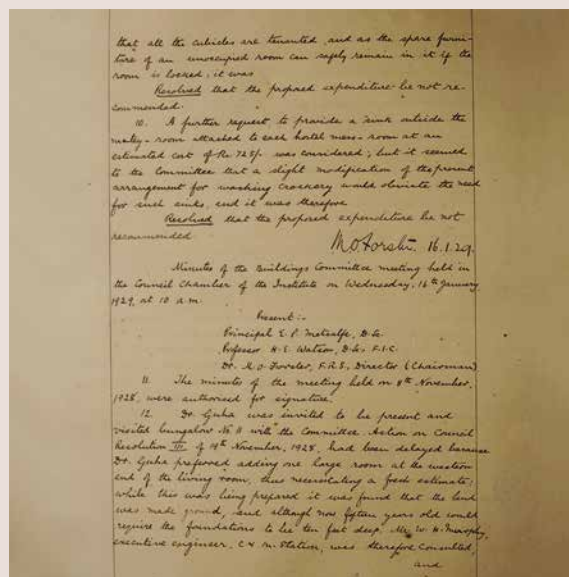 that all the cubicles are tenanted, and as the spare furni-
ture of an unoccupied room can safely remain in it if the
room is locked, it was
Resolved that the proposed expenditure be not re-
commended.
10. A further request to provide a sink outside the
matey-room attached to each hostel mess-room at an
estimated cost of Rs 725/- was considered; but it seemed
to the Committee that a slight modification of the present
arrangement for washing crockery would obviate the need
for such sinks, and it was therefore
Resolved that the proposed expenditure be not
recommended
M O Forster. 16.1.29.
Minutes of the Buildings Committee meeting held in
the Council Chamber of the Institute on Wednesday, 16th January,
1929, at 10 a.m.
Present:-
Principal E. P. Metcalfe, D.Sc.
Professor H. E. Watson, D.Sc. F.I.C.
Dr. M. O. Forster, F.R.S., Director (Chairman)
11. The minutes of the meeting held on 8th November,
1928, were authorised for signature.
12. Dr. Guha was invited to be present and
visited bungalow No 11 with the Committee. Action on Council
Resolution III of 19th November, 1928, had been delayed because
Dr. Guha preferred adding one large room at the western
end of the living room, thus necessitating a fresh estimate;
while this was being prepared it was found that the land
was made ground, and although now fifteen years old would
require the foundations to be ten feet deep. Mr. W. H. Murphy,
executive engineer, C & M. Station, was therefore consulted,
and